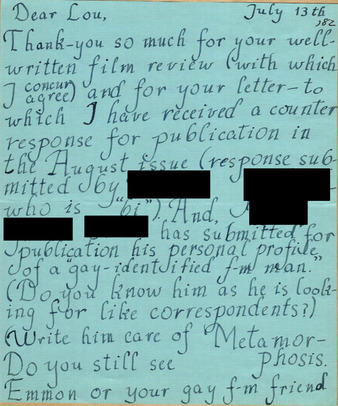 Dear Lou, July 13th
,82
Thank-you so much for your well-
written film review (with which
I concur
agree) and for your letter-to
which I have received a counter
response for publication in
the August issue (response sub-
mitted by
who is "bi"). And,
has submitted for
publication his personal profile
of a "gay-identified f-m man."
(Do you know him as he is look-
ing for like correspondents?)
(Write him care of Metamor-
phosis.
Do you still see
Emmon or your gay f-m friend